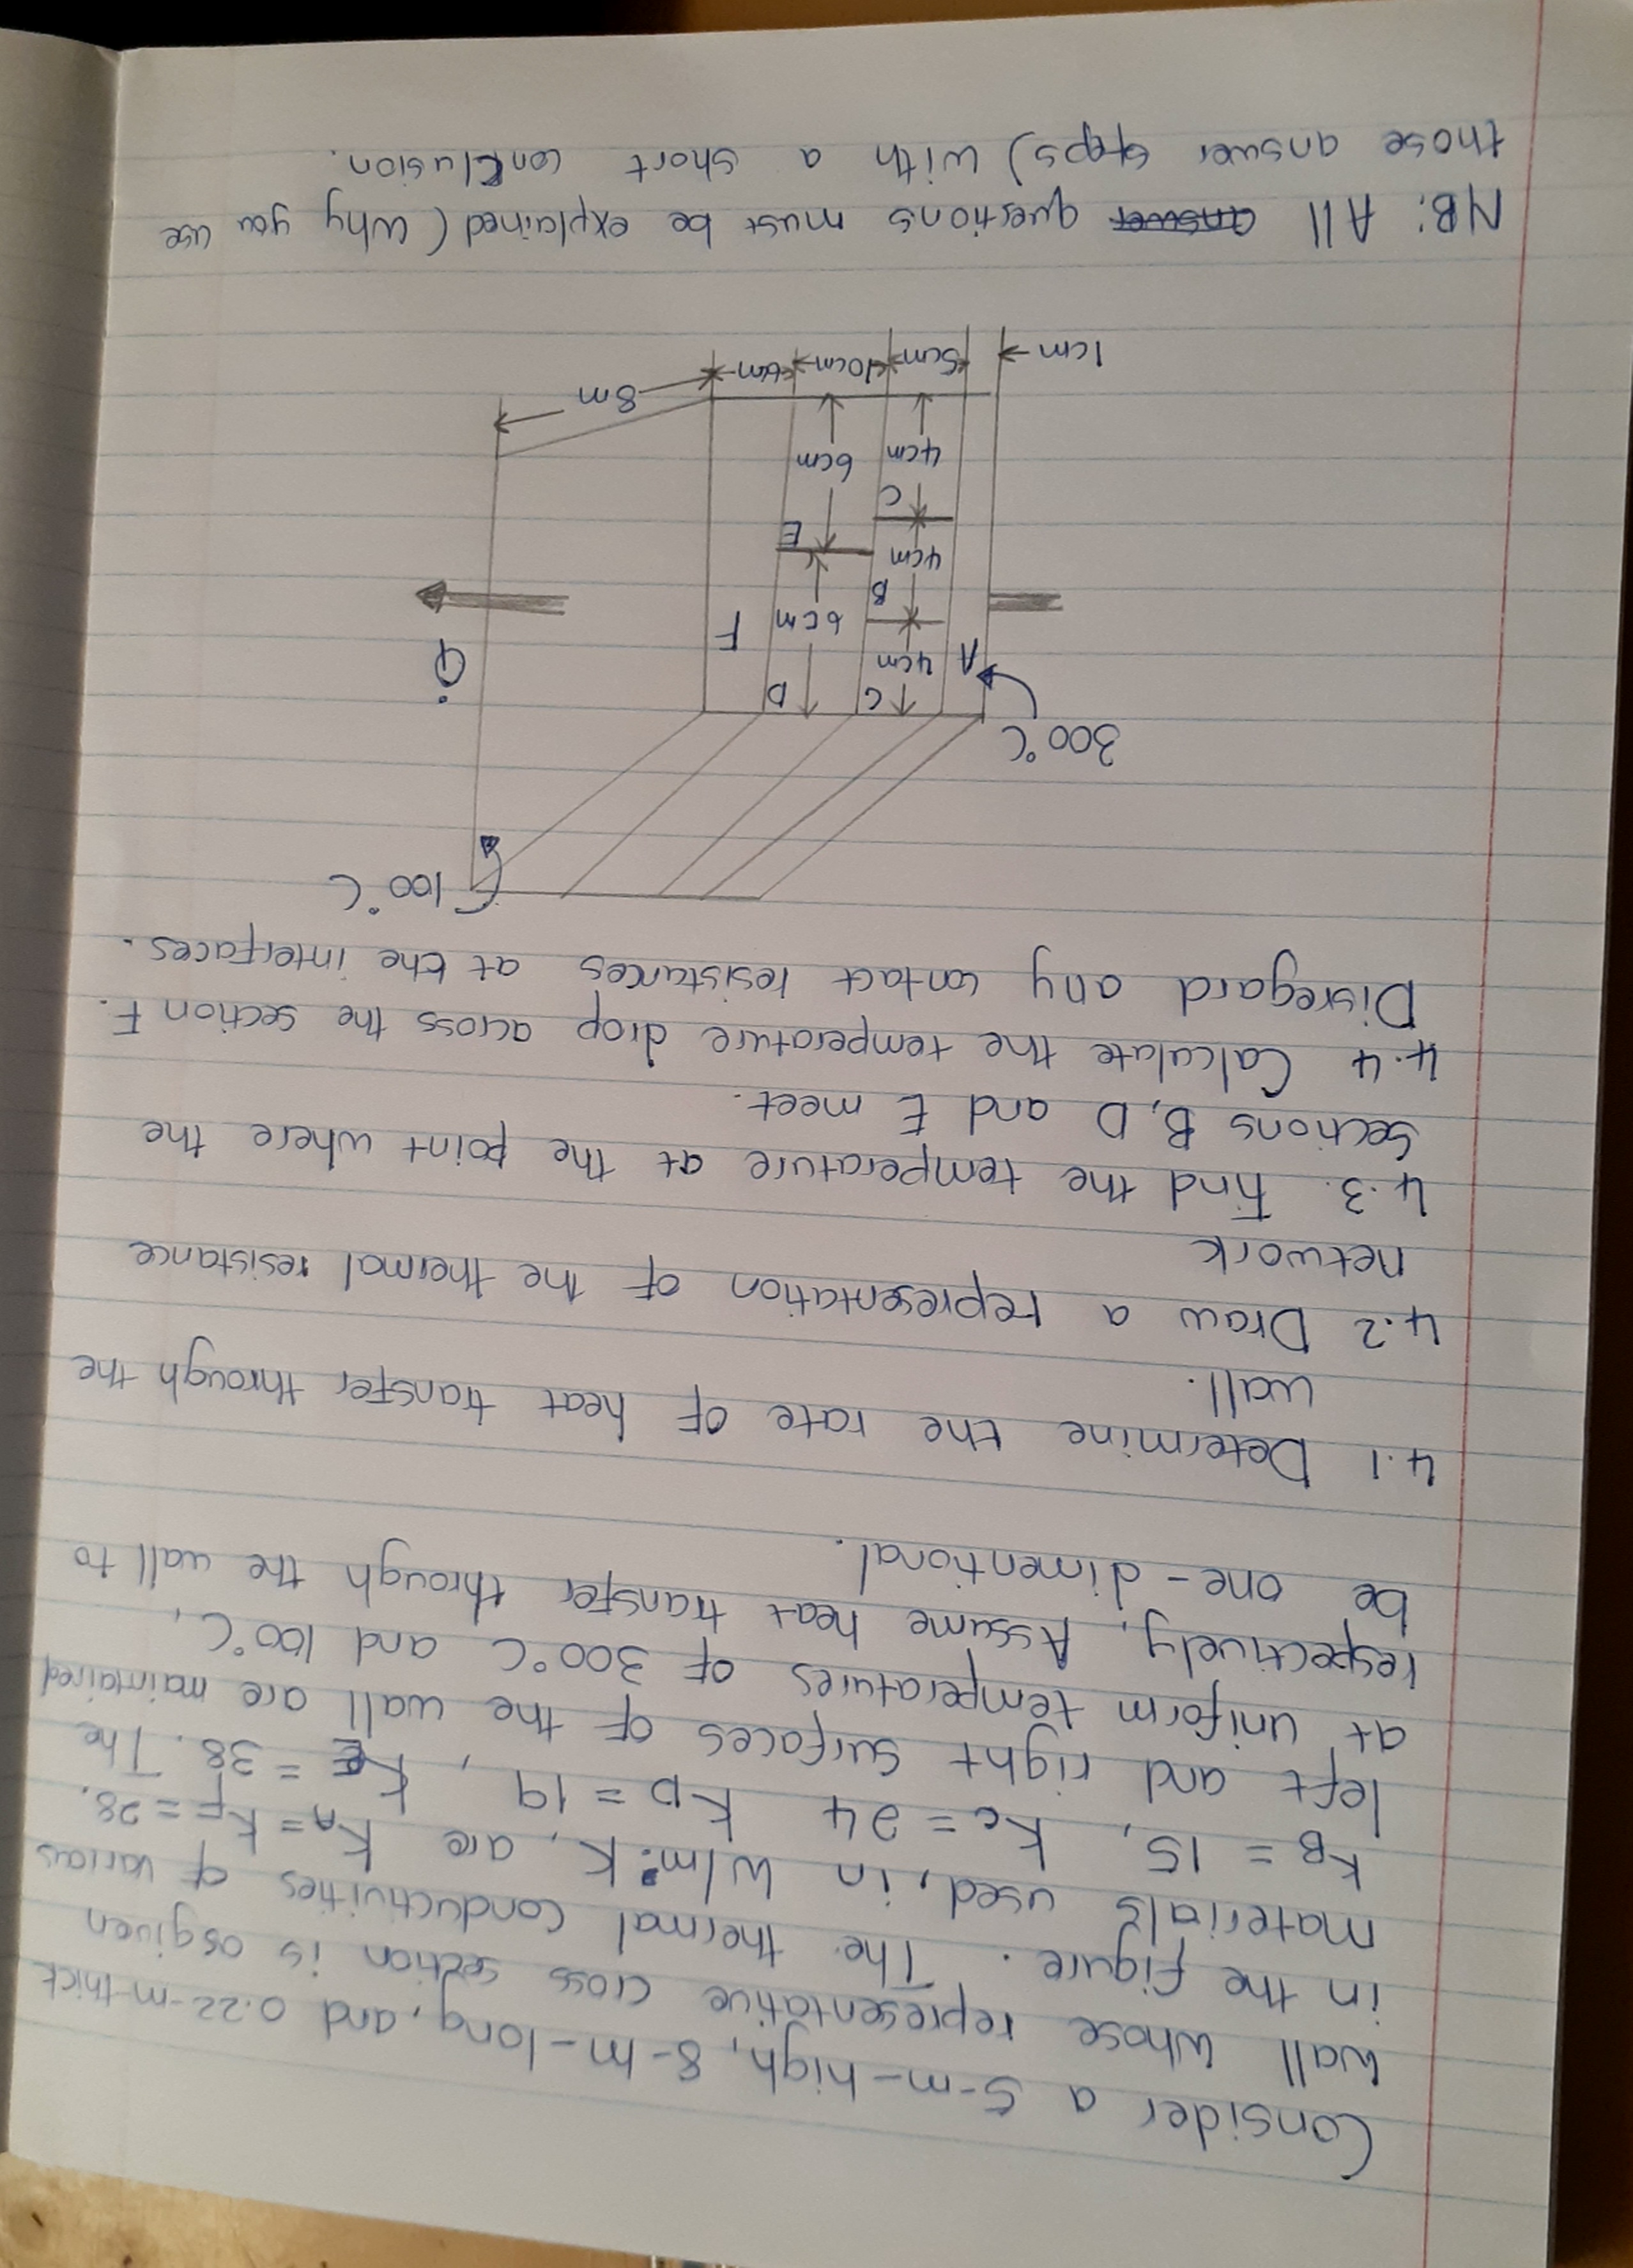 Consider a 5-m-high, 8-m-long, and 0.22-m-thick
wall whose representative cross section is as given
in the figure. The thermal conductivities of various
materials used, in W/m·K, are KA = KF = 28.
KB = 15, Kc = 24 KD = 19, KE = 38. The
left and right surfaces of the wall are maintained
at uniform temperatures of 300°C and 100°C,
respectively. Assume heat transfer through the wall to
be one-dimentional.
4.1 Determine the rate of heat transfer through the
wall.
4.2 Draw a representation of the thermal resistance
network
4.3. Find the temperature at the point where the
sections B, D and E meet.
4.4 Calculate the temperature drop across the section F.
Disregard any contact resistances at the interfaces.
100°C
300°C
Q̇
A
C
D
F
4cm
6cm
B
4cm
E
C
4cm
6cm
1cm
5cm
10cm
6cm
8m
NB: All answer questions must be explained (Why you use
those answer steps) with a short conclusion.